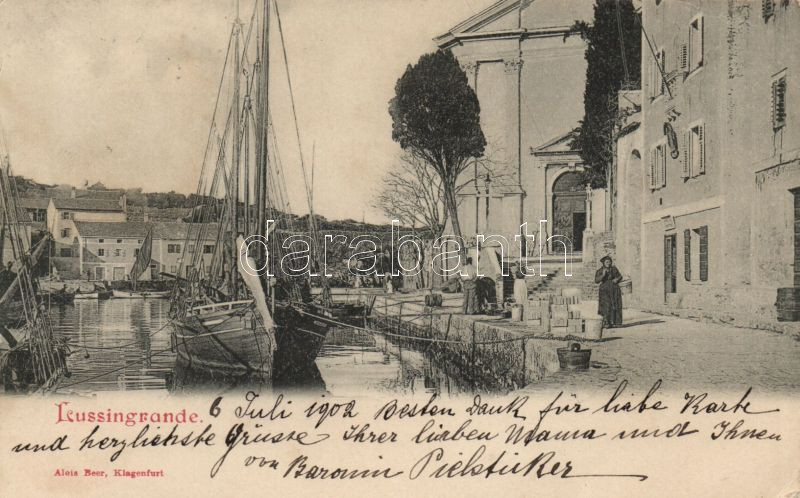 darabanth.com
Lussingrande.
6 Juli 1902 Besten Dank für liebe Karte
und herzlichste Grüsse Ihrer lieben Mama und Ihnen
von Baronin Pielsticker
Alois Beer, Klagenfurt